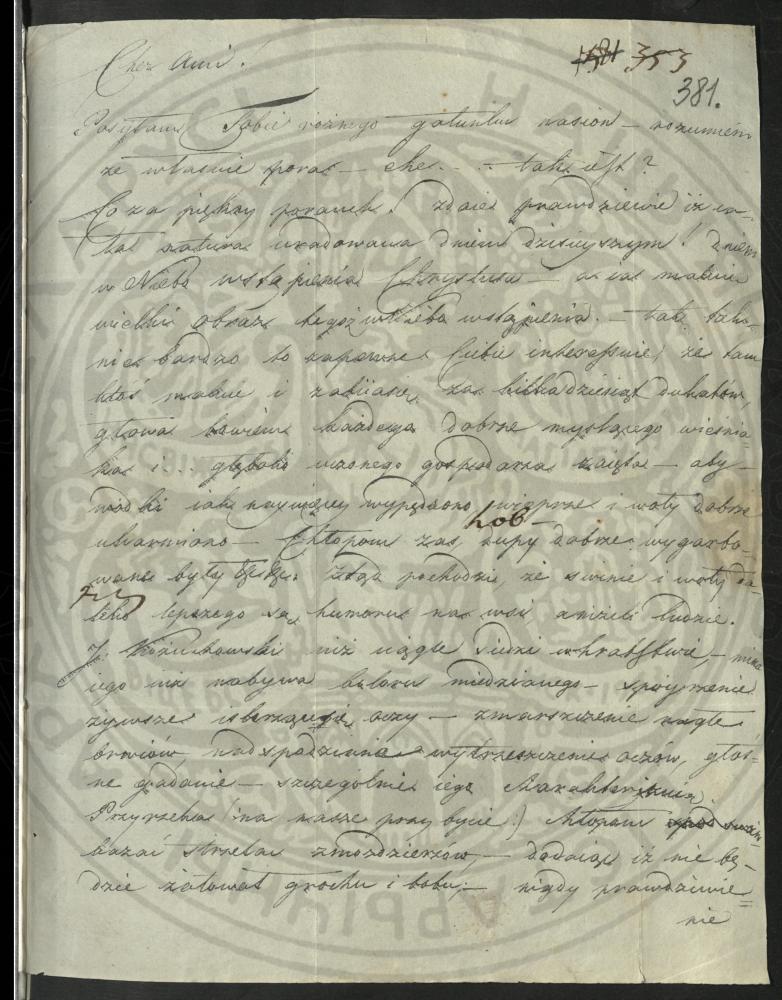 Cher Ami!
1381 353
381.
Posyłam Tobie rożnego gatunku nasion – rozumiém
że własnie poras – che... – tak iest?
Co za piękny poranek! zdaie prawdziwie iż ca-
ła natura uradowana dniem dzisieyszym! dniem
w Niebo wstąpienia Chrystusa – a ia maluie
wielki obraz tegoż w Nieba wstąpienia. – tak tak
nie bardzo to zapewne Ciebie interessuie, że tam
ktoś maluie i zabiia się za kilkadziesiąt dukatów,
głowa bowiem każdego dobrze myslącego wieśnia=
ka i... głęboko uczonego gospodarza zaięta – aby
wódki iak naywięcey wypędzono, wieprze i woły dobrze
ukarmiono – Chłopom zaś, dupy dobrze wygarbo-
wane były &c&c. Ztąd pochodzi, że swinie i woły da-
leko lepszego są humoru na wsi, aniżeli ludzie.
J. Kożuchowski iuż ciągle siedzi w hrabstwie, – mina
iego iuż nabywa koloru miedzianego – spoyrzenie
żywsze i skrzące się oczy – zmarszczenie nagłe
brwiów, nadspodziane wytrzeszczenie oczów, głoś-
ne gadanie – szczególnie iego charakteryzuią.
Przyrzekł (na nasze przybycie) chłopom
kazać strzelać z mozdzierzów, – dodaiąc iż nie bę-
dzie żałował grochu i bobu; – nigdy prawdziwie
nie